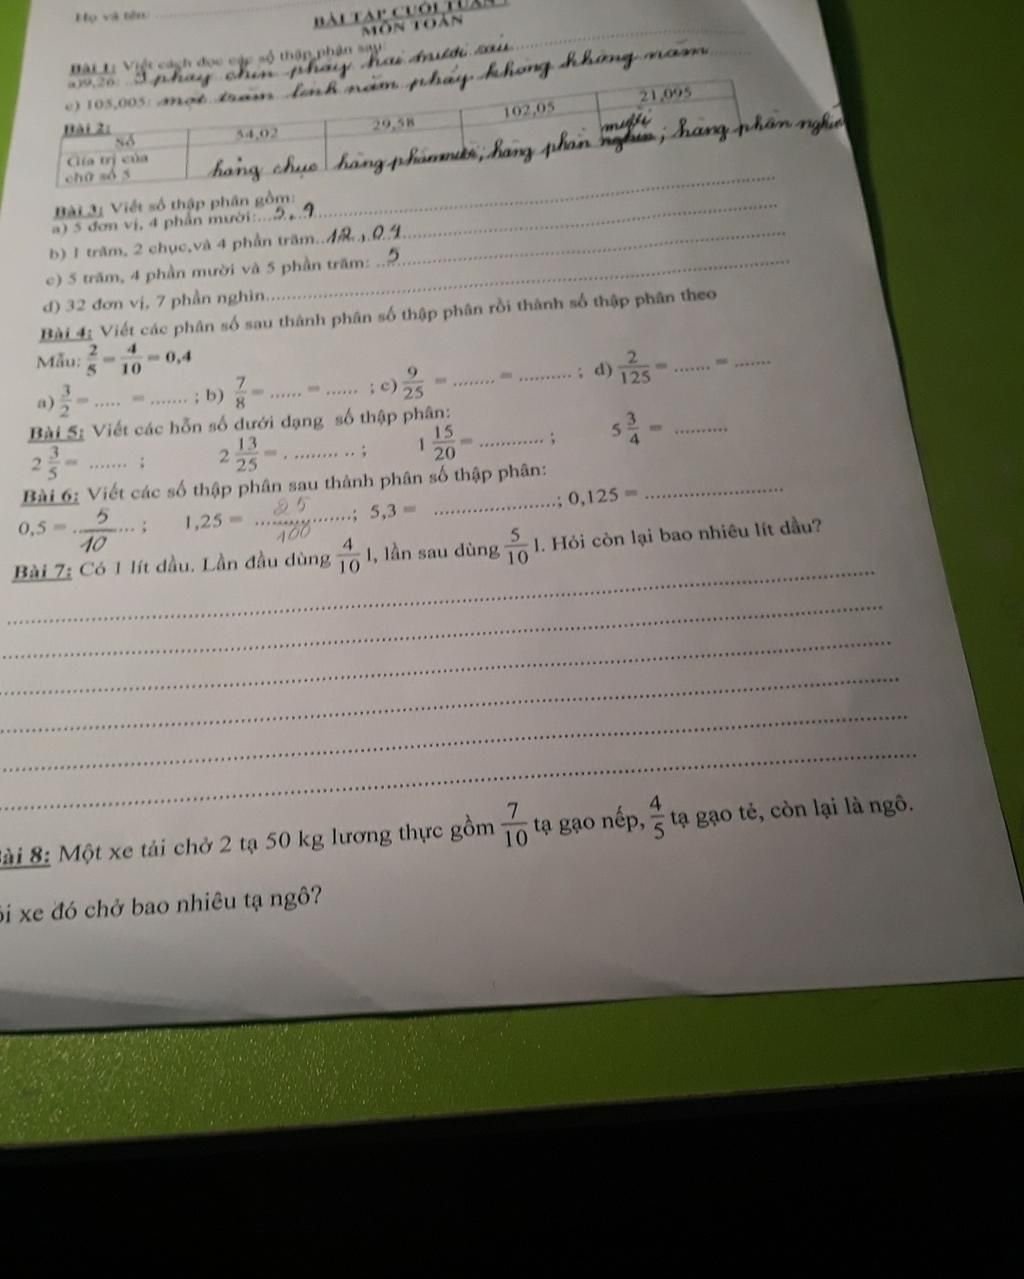 Họ và tên: ........
BÀI TẬP CUỐI TUẦN
MÔN TOÁN
Bài 1: Viết cách đọc các số thập phân sau:
a) 9,26: phẩy chín phẩy hai mươi sáu
c) 105,005: một trăm linh năm phẩy không không năm
Bài 2:
Số 54,02 29,58 102,05 21,095
Gía trị của chữ số 5 hàng chục hàng phần mười; hàng phần mười nghìn; hàng phần nghìn
Bài 3: Viết số thập phân gồm:
a) 5 đơn vị, 4 phần mười:...5,9......
b) 1 trăm, 2 chục,và 4 phần trăm..12,04......
c) 5 trăm, 4 phần mười và 5 phần trăm: ..5......
d) 32 đơn vị, 7 phần nghìn........
Bài 4: Viết các phân số sau thành phân số thập phân rồi thành số thập phân theo
Mẫu: 2/5 = 4/10 = 0,4
a) 3/2 = ..... = ....... ; b) 7/8 = ...... = ...... ; c) 9/25 = ........ = .......... ; d) 2/125 = ....... = .......
Bài 5: Viết các hỗn số dưới dạng số thập phân:
2 3/5 = ....... ; 2 13/25 = . ........ .. ; 1 15/20 = ............ ; 5 3/4 = ..........
Bài 6: Viết các số thập phân sau thành phân số thập phân:
0,5 = 5/10 ; 1,25 = 25/100 ; 5,3 = ......................; 0,125 = ......................
Bài 7: Có 1 lít dầu. Lần đầu dùng 4/10 l, lần sau dùng 5/10 l. Hỏi còn lại bao nhiêu lít dầu?
Bài 8: Một xe tải chở 2 tạ 50 kg lương thực gồm 7/10 tạ gạo nếp, 4/5 tạ gạo tẻ, còn lại là ngô.
ỏi xe đó chở bao nhiêu tạ ngô?